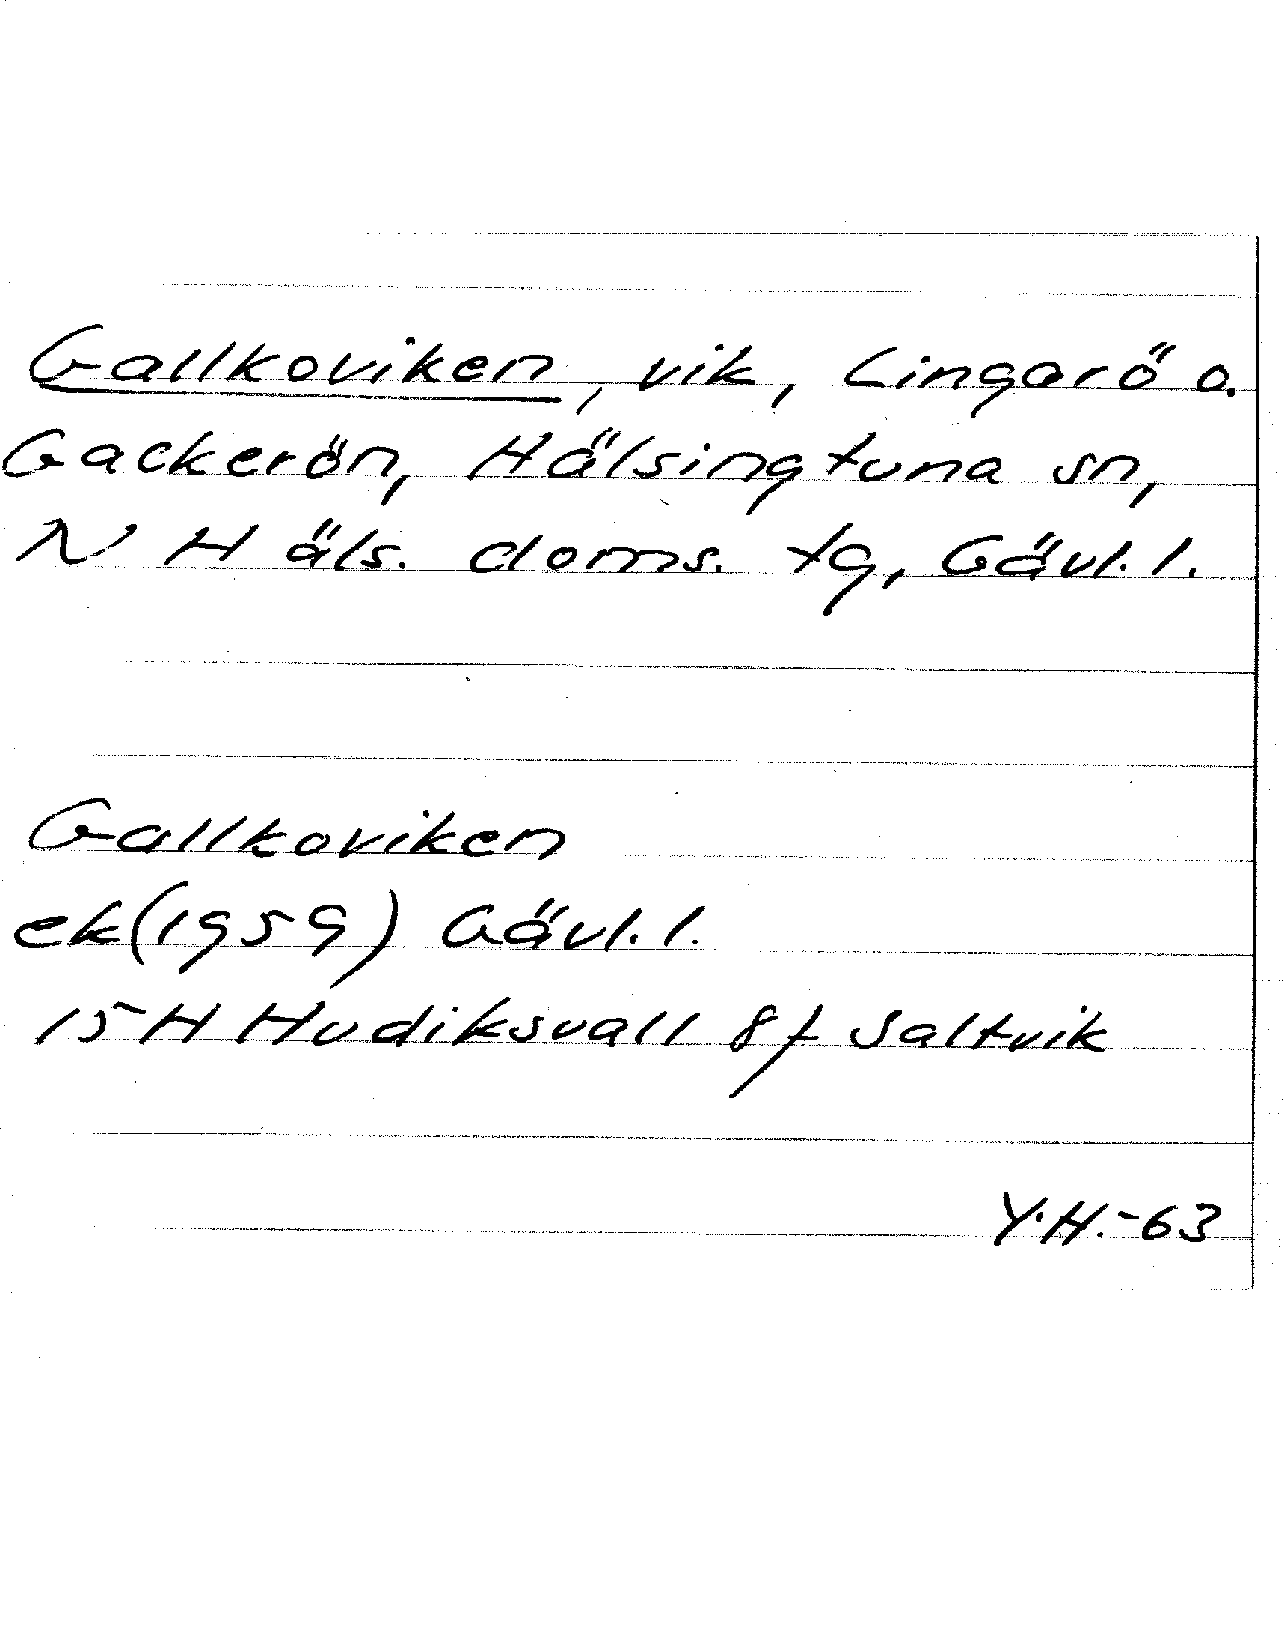 Gallkoviken, vik, Lingarö o.
Gackerön, Hälsingtuna sn,
N Häls. doms. tg, Gävl. l.
Gallkoviken
ek(1959) Gävl. l.
15H Hudiksvall 8f Saltvik
Y.H.-63